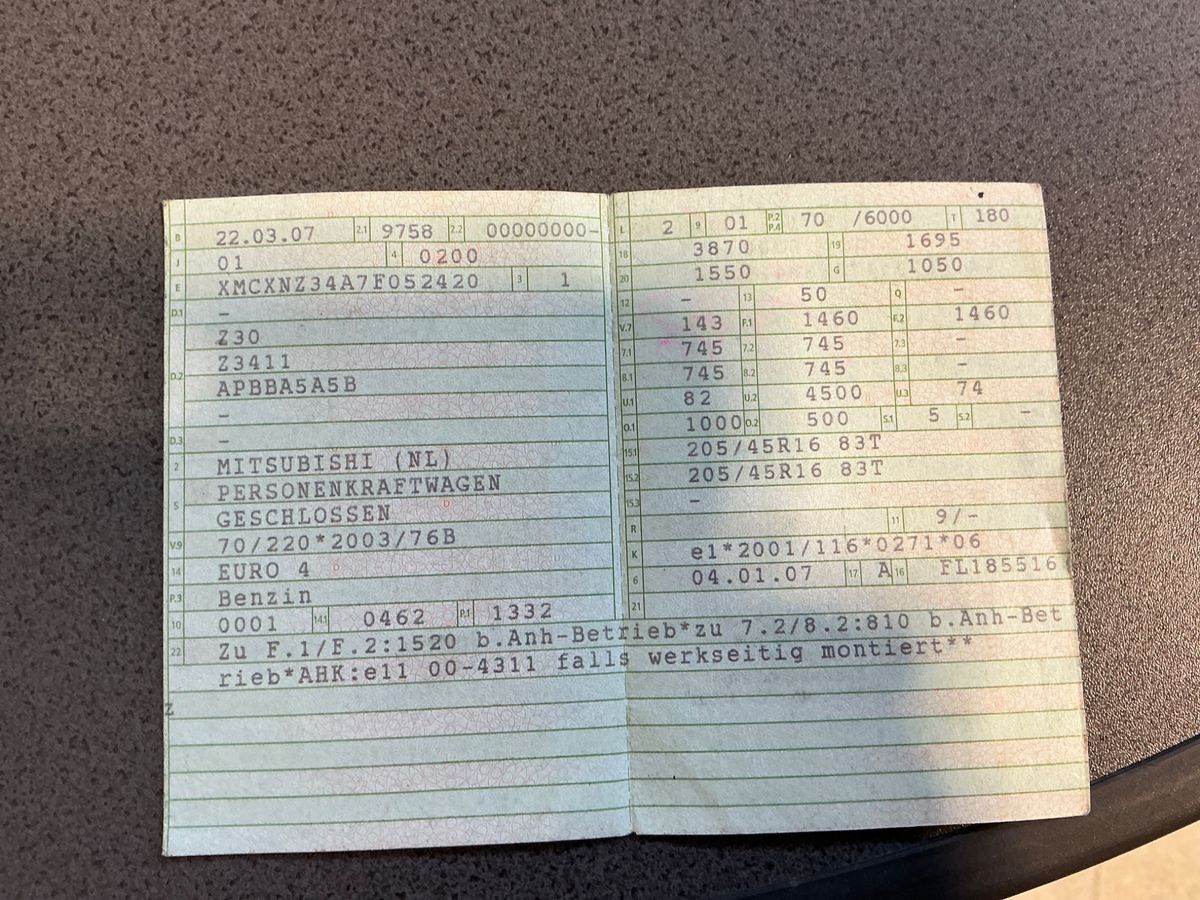 B 22.03.07 2.1 9758 2.2 00000000-
J 01 4 0200
E XMCXNZ34A7F052420 3 1
D.1 -
Z30
D.2 Z3411
APBBA5A5B
-
D.3 -
2 MITSUBISHI (NL)
5 PERSONENKRAFTWAGEN
GESCHLOSSEN
V.9 70/220*2003/76B
14 EURO 4
P.3 Benzin
10 0001 14.1 0462 P.1 1332
L 2 9 01 P.2 P.4 70 /6000 T 180
18 3870 19 1695
20 1550 G 1050
12 - 13 50 Q -
V.7 143 F.1 1460 F.2 1460
7.1 745 7.2 745 7.3 -
8.1 745 8.2 745 8.3 -
U.1 82 U.2 4500 U.3 74
O.1 1000 O.2 500 S.1 5 S.2 -
15.1 205/45R16 83T
15.2 205/45R16 83T
15.3 -
R 11 9/-
K e1*2001/116*0271*06
6 04.01.07 17 A 16 FL185516
21
22 Zu F.1/F.2:1520 b.Anh-Betrieb*zu 7.2/8.2:810 b.Anh-Bet
rieb*AHK:e11 00-4311 falls werkseitig montiert**
Z